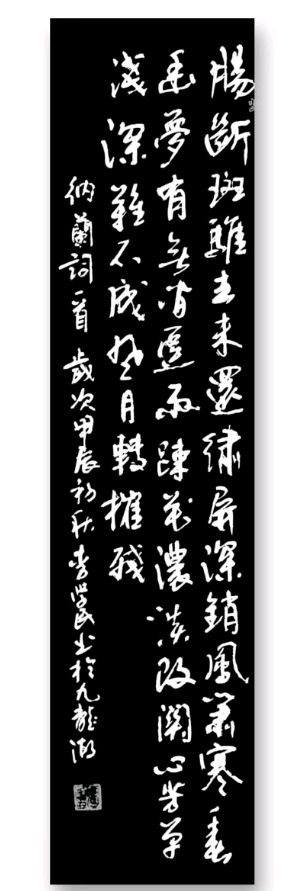 腸斷斑騅去未還繡屏深鎖鳳簫寒一春
幽夢有無間逗雨疎花濃淡改關心芳草
淺深難不成風月轉摧殘
納蘭詞一首 歲次甲辰初秋 李民書於九龍湖